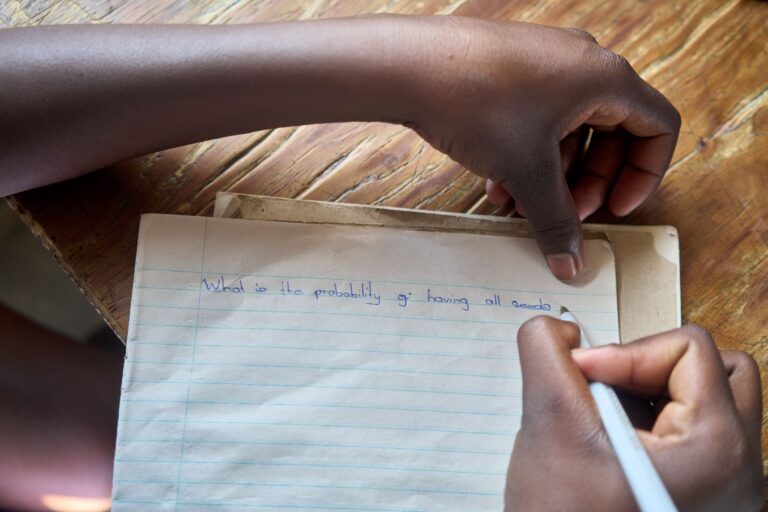 What is the probability of having all seeds